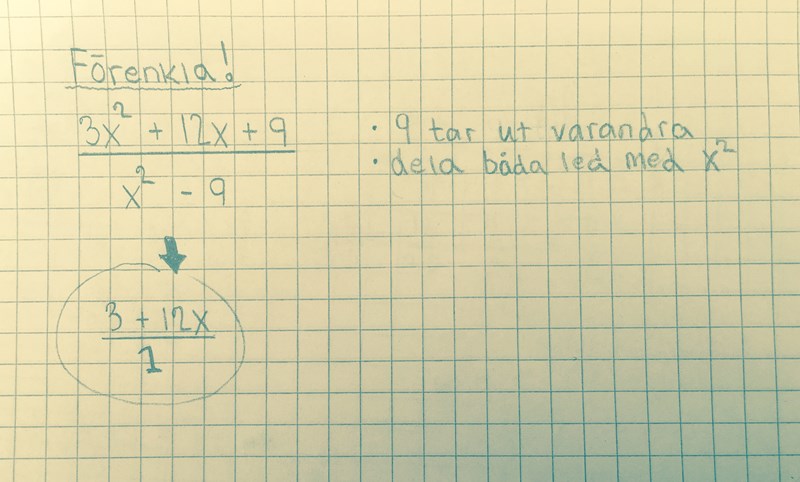 Förenkla!
3x² + 12x + 9
x² - 9
· 9 tar ut varandra
· dela båda led med x²
3 + 12x
1